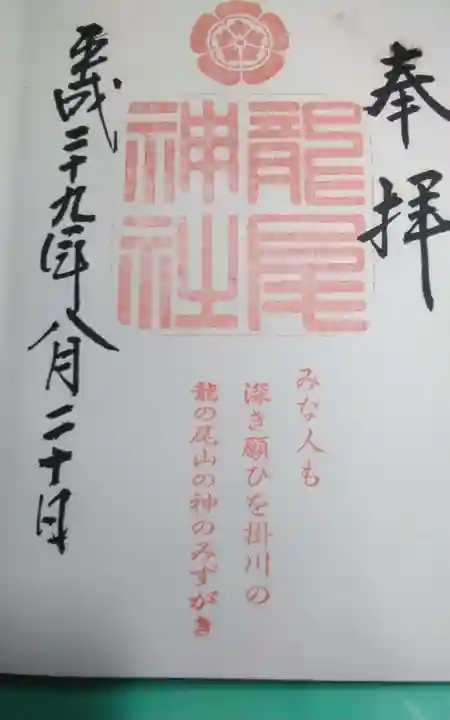 奉拝
龍尾
神社
みな人も
深き願ひを掛川の
龍の尾山の神のみずがき
平成二十九年八月二十日